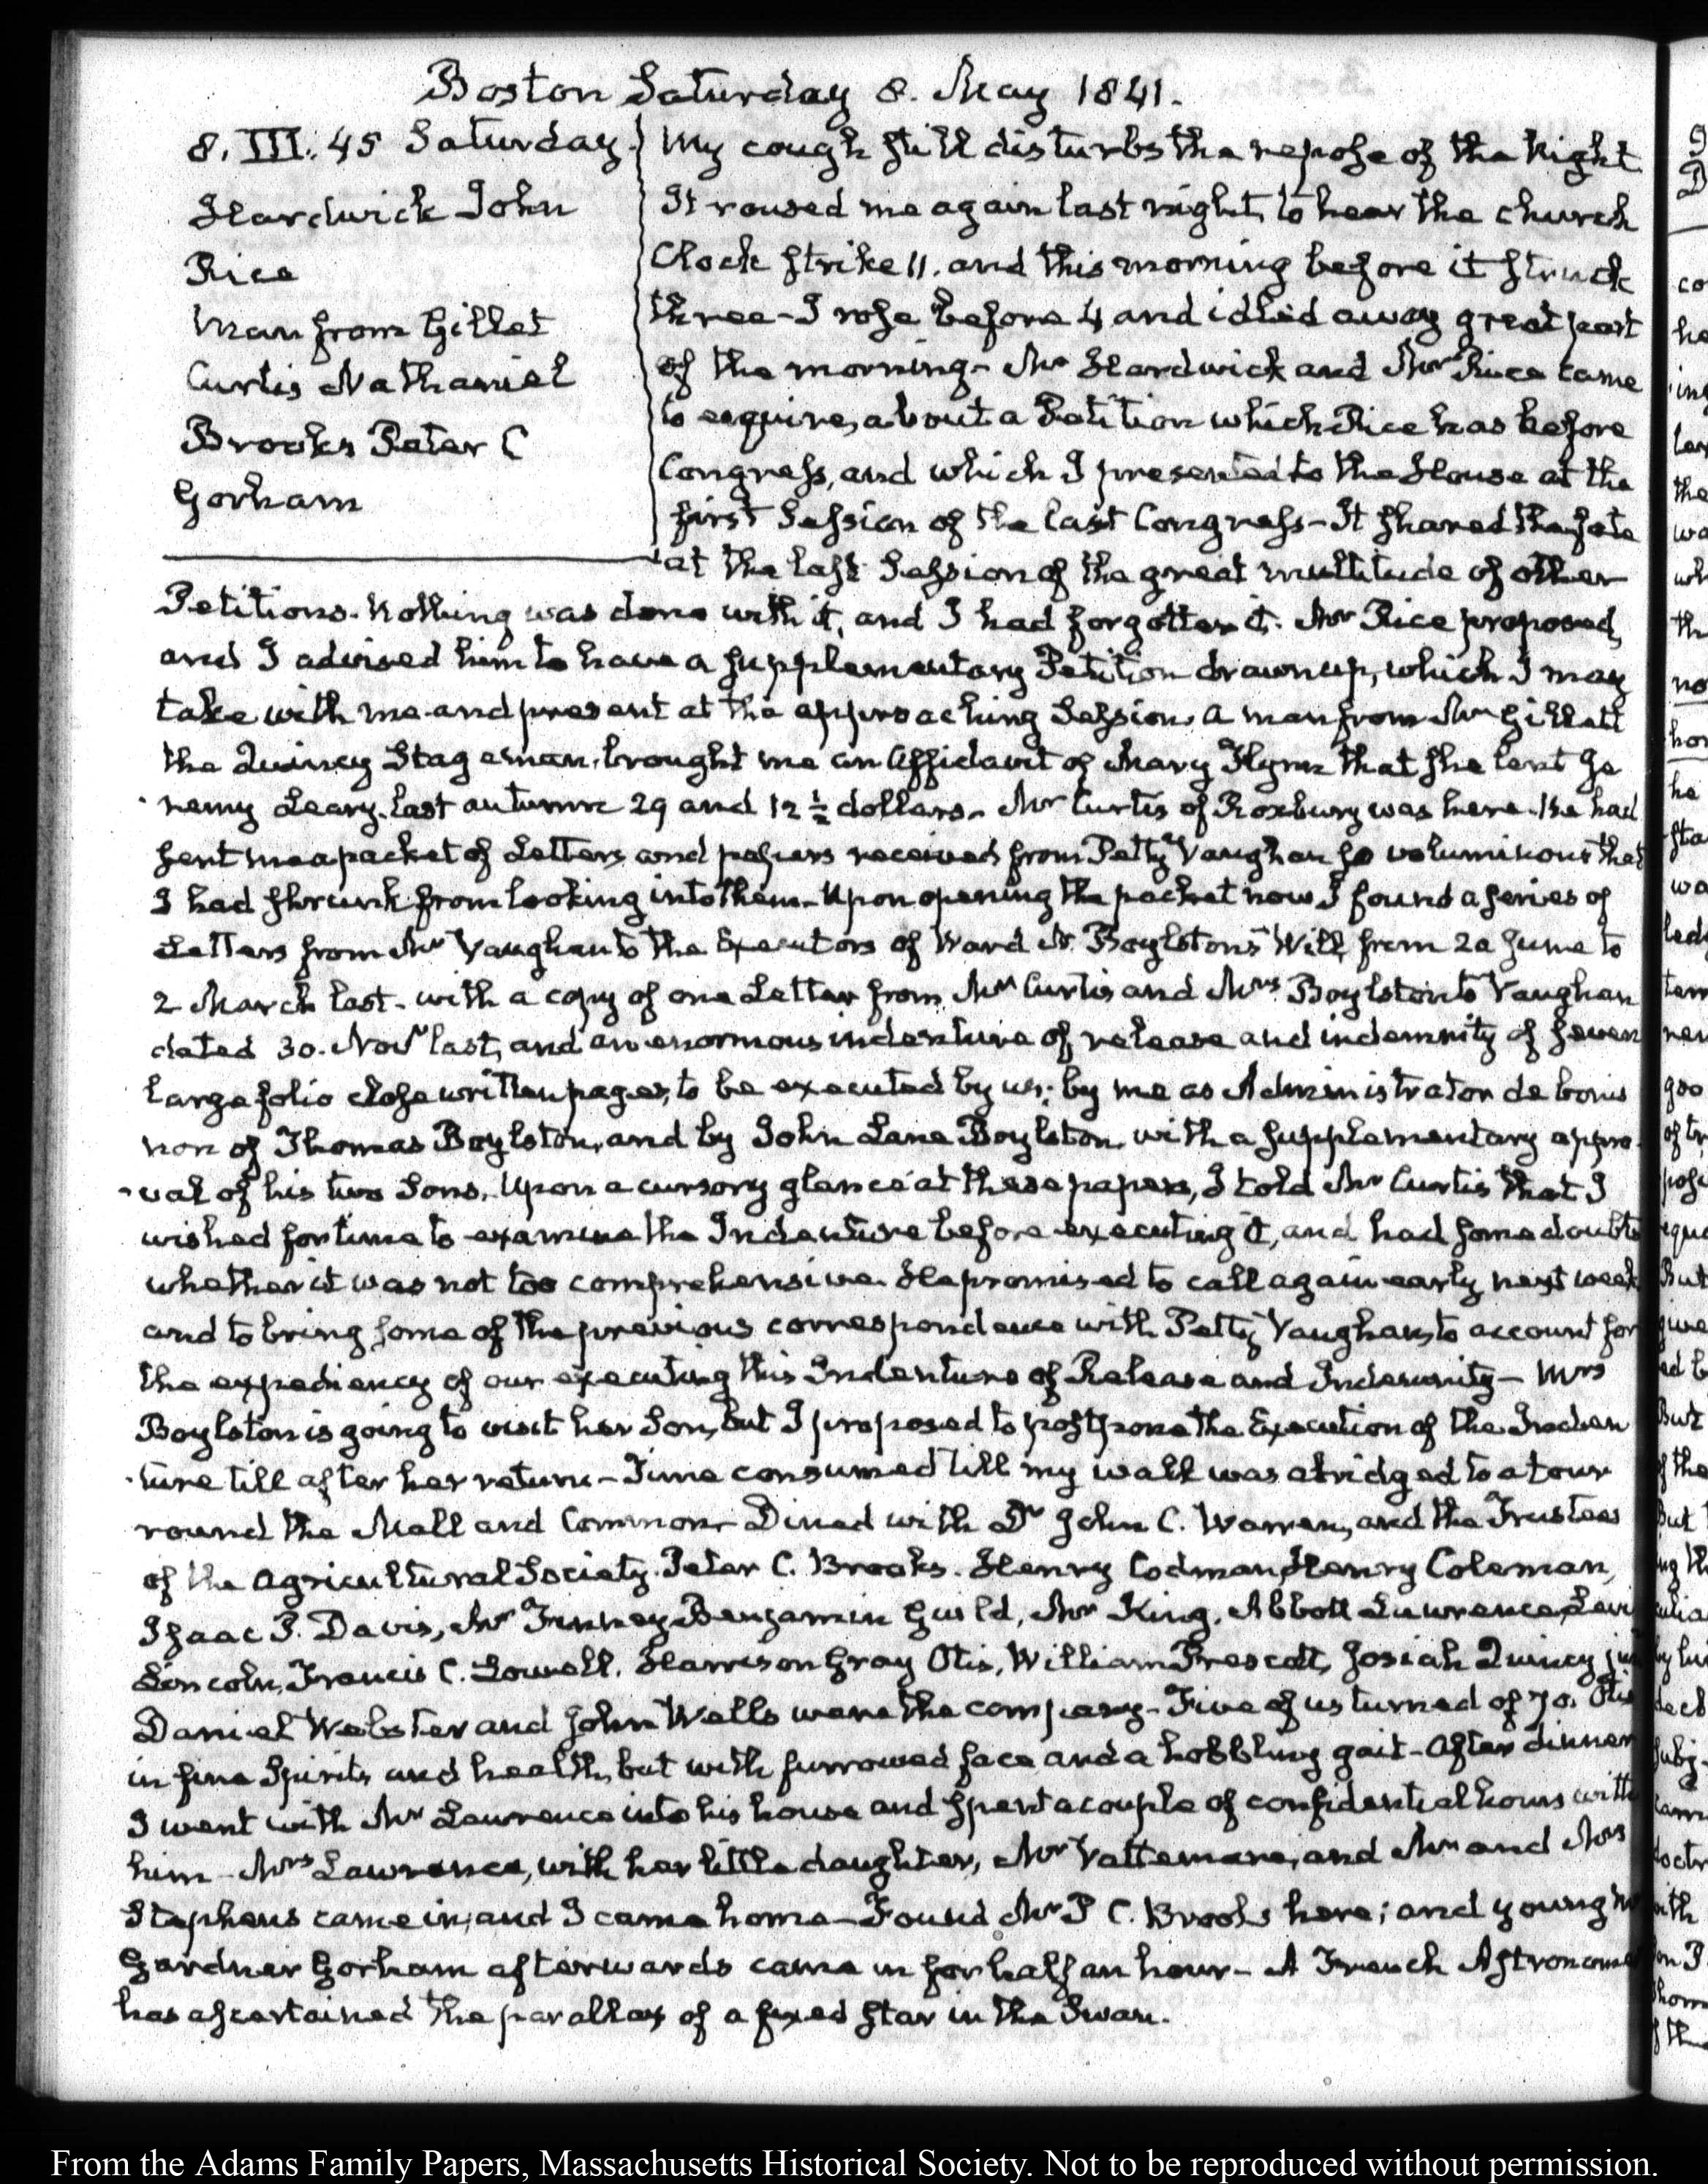 Boston Saturday 8. May 1841.
8. III:. 45 Saturday.
Hardwick John
Rice
Man from Gillet
Curtis Nathaniel
Brooks Peter C
Gorham
My cough still disturbs the repose of the Night
It roused me again last night, to hear the church
Clock strike 11. and this morning before it struck
three - I rose before 4 and idled away great part
of the morning - Mr Hardwick and Mr Rice came
to enquire, about a Petition which Rice has before
Congress, and which I presented to the House at the
first Session of the last Congress - It shared the fate
at the last Session of the great multitude of other
Petitions. Nothing was done with it, and I had forgotten it. Mr Rice proposed,
and I advised him to have a supplementary Petition drawn up, which I may
take with me and present at the approaching Session. A man from Mr Gillett
the Quincy Stage man, brought me an Affidavit of Mary Flynn that she lent Je
remy Leary last autumn 29 and 12 ½ dollars. Mr Curtis of Roxbury was here. He had
sent me a packet of Letters and papers received from Petty Vaughan so voluminous that
I had shrunk from looking into them. Upon opening the packet now I found a series of
Letters from Mr Vaughan to the Executors of Ward N. Boylston's Will, from 20 June to
2 March last. with a copy of one Letter from Mr Curtis and Mrs Boylston to Vaughan
dated 30. Novr last, and an enormous indenture of release and indemnity of seven
large folio close written pages, to be executed by us; by me as Administrator de bonis
non of Thomas Boylston, and by John Lane Boylston, with a supplementary appro
val of his two Sons. Upon a cursory glance at these papers, I told Mr Curtis that I
wished for time to examine the Indenture before executing it, and had some doubts
whether it was not too comprehensive. He promised to call again early next week
and to bring some of the previous correspondence with Petty Vaughan, to account for
the expediency of our executing this Indenture of Release and Indemnity - Mrs
Boylston is going to visit her Son, but I proposed to postpone the Execution of the Inden
ture till after her return - Time consumed till my walk was abridged to a tour
round the Mall and Common - Dined with Dr John C. Warren, and the Trustees
of the Agricultural Society. Peter C. Brooks. Henry Codman, Henry Coleman,
Isaac P. Davis, Mr Benjamin Guild, Mr King, Abbott Lawrence, Levi
Lincoln, Francis C. Lowell, Harrison Gray Otis, William Prescott, Josiah Quincy jun
Daniel Webster and John Wells were the company - Five of us turned of 70. Otis
in fine Spirits and health, but with furrowed face and a hobbling gait - After dinner
I went with Mr Lawrence into his house and spent a couple of confidential hours with
him - Mrs Lawrence, with her little daughter, Mr Vattemare, and Mr and Mrs
Stephens came in, and I came home - Found Mr P C. Brooks here; and young Mr
Gardner Gorham afterwards came in for half an hour - A French Astronomer
has ascertained the parallax of a fixed star in the Swan.
From the Adams Family Papers, Massachusetts Historical Society. Not to be reproduced without permission.